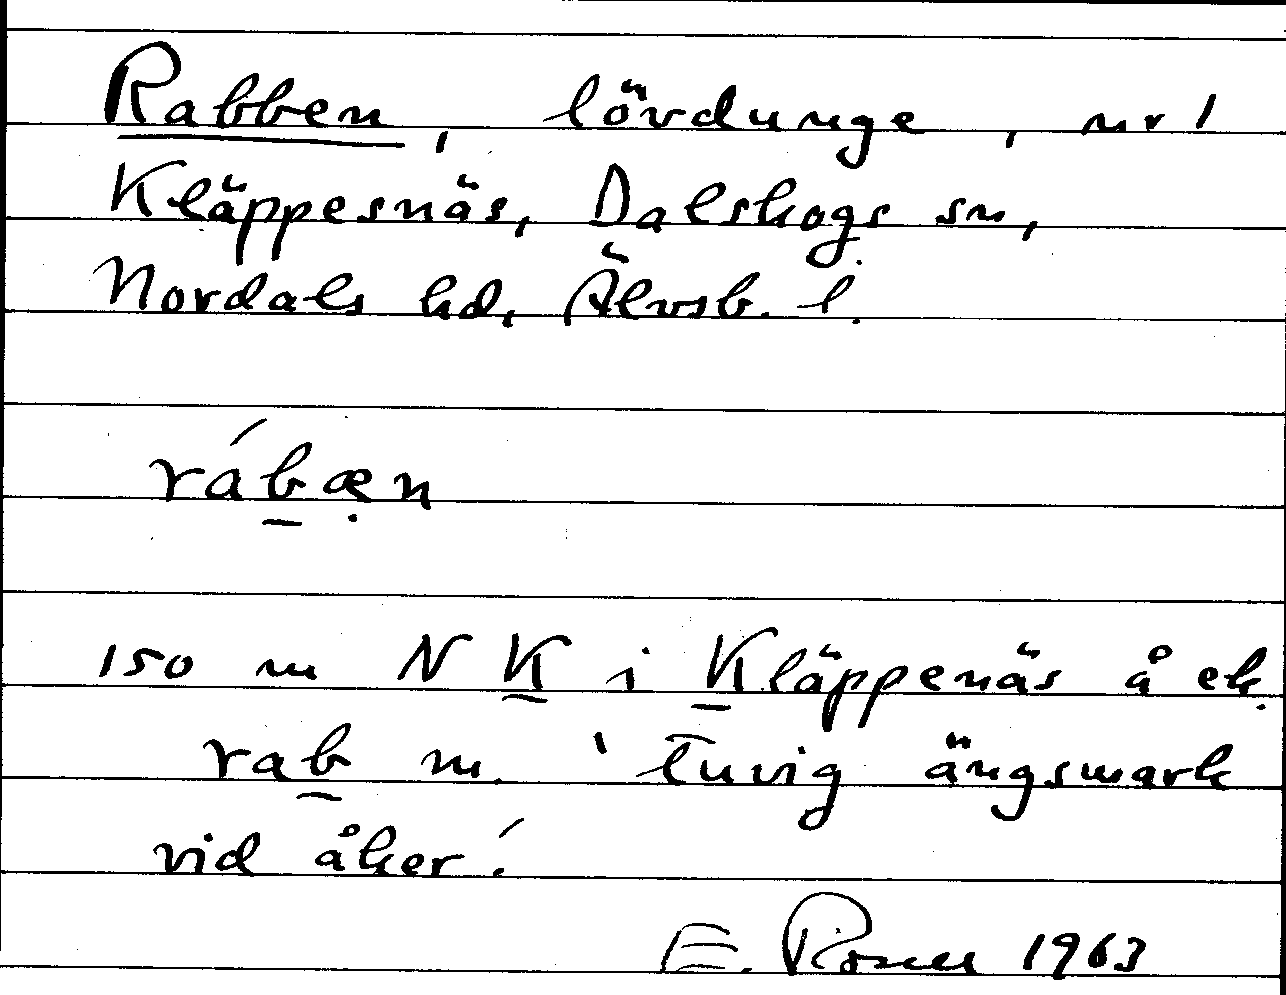 Rabben, lövdunge, nr 1
Kläppesnäs, Dalskogs sn,
Nordals hd, Älvsb. l.
rábæ̣n
150 m N K i Kläppenäs å ek.
rab m. 'tuvig ängsmark
vid åker.'
E. 1963